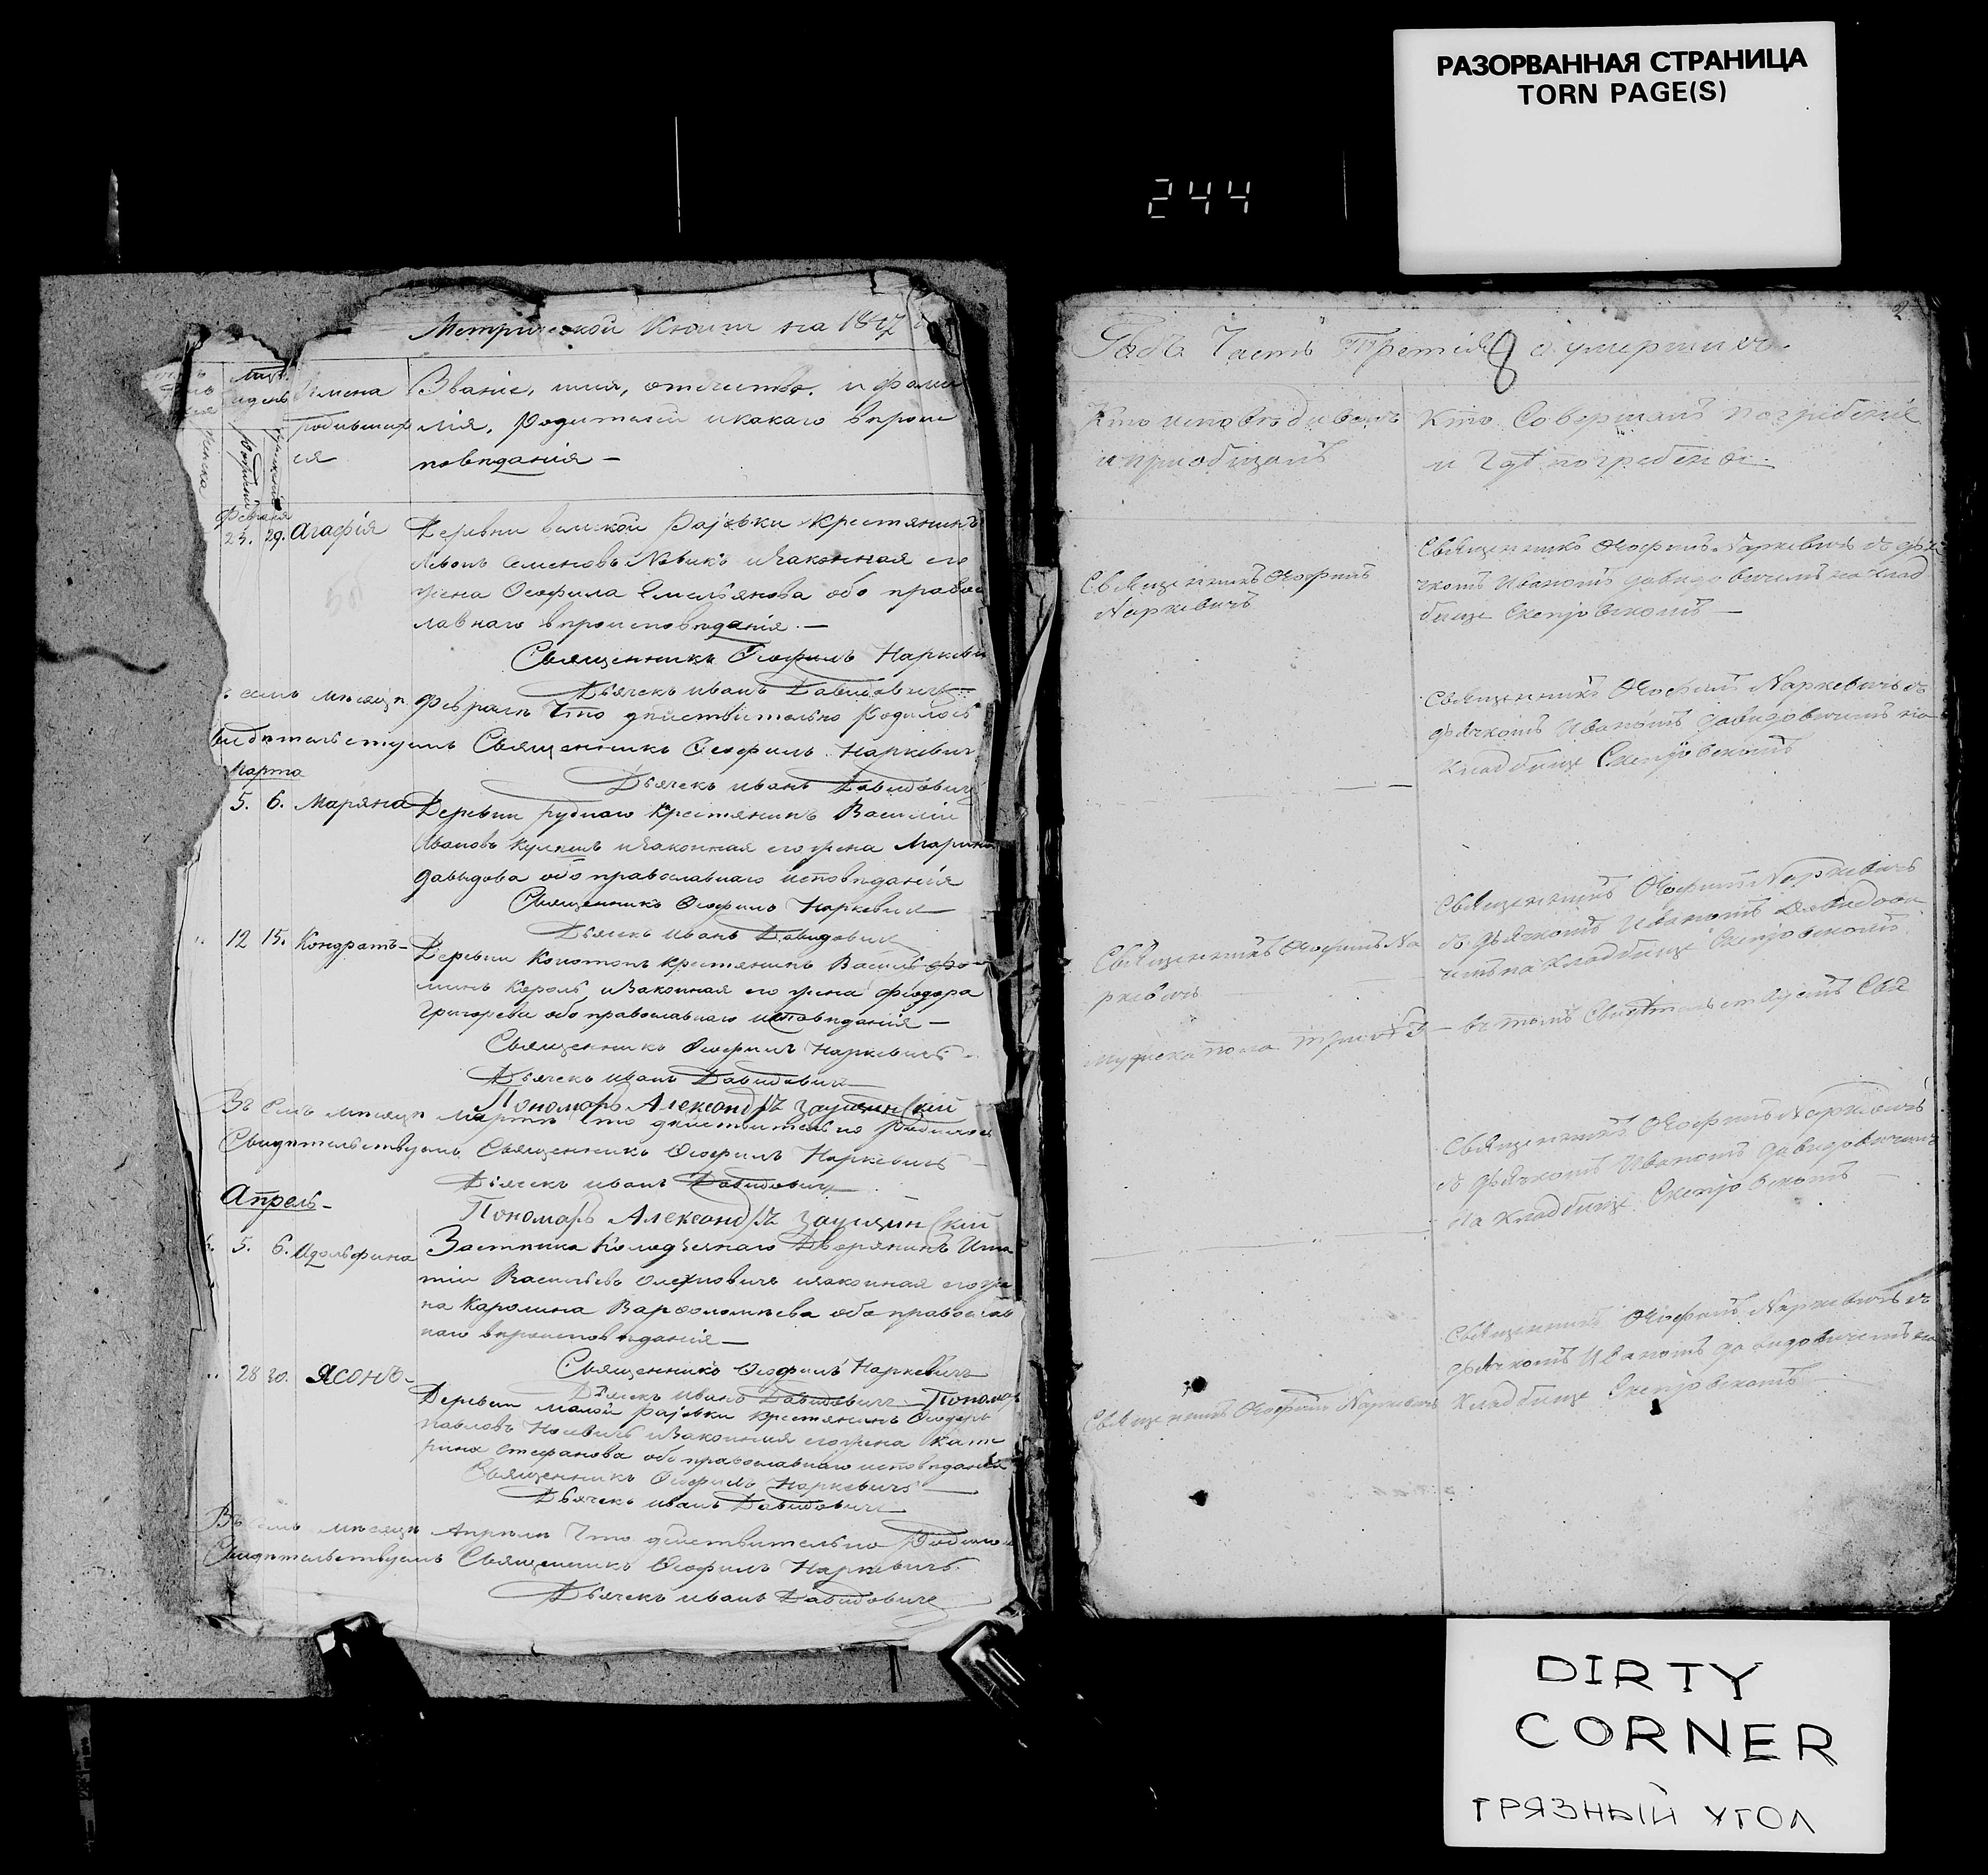 РАЗОРВАННАЯ СТРАНИЦА
TORN PAGE(S)
244
Метрической Книги на 1847
Имена
родивших
ся
Званіе, имя, отчество, и фами
лія, Родителей и какаго вѣроис
повѣданія —
Февраля
23. 29. Агафія
Деревни великой Раѣвки крестянинъ
Левонъ Семеновъ Новикъ и Законная его
жена Феофила Емельянова обо правос
лавнаго вѣроисповѣданія. —
Священникъ Ѳеофилъ Наркеви
Дьячекъ иванъ Давидовичъ
семъ мѣсяцѣ февралѣ Что дѣйствительно Родилось
видѣтельствуемъ Священникъ Ѳеофилъ Наркевич
Дьячекъ иванъ Давидовичъ
Марта
5. 6. Маряна
Деревни руднаго крестянинъ Василій
Ивановъ и Законная его жена Марина
Давыдова обо православнаго исповѣданія
Священникъ Ѳеофилъ Наркевич
Дьячекъ иванъ Давидович
12 15. Кондратъ —
Деревни Конотопъ крестянинъ Василь Фо
минъ Король и Законная его жена Феодора
Григорева обо православнаго исповѣданія —
Священникъ Ѳеофилъ Наркевичъ
Дьячекъ иванъ Давидович
Пономарь Александръ
Въ семъ мѣсяцѣ мартѣ Что дѣйствительно родилось
Свидѣтельствуемъ Священникъ Ѳеофилъ Наркевичъ
Дьячекъ иванъ Давидович
Апрель —
Пономарь Александръ
5. 6. Адольфина
Застенка Дворянинъ Игна
тій Васильевъ Олехновичъ и законная его же
на Каролина Варфоломѣева обо православ
наго вѣроисповѣданія —
Священникъ Ѳеофилъ Наркевичъ
Дьячекъ иванъ Давидовичъ Пономарь
28 30. Ясонъ —
Деревни малой раѣвки крестянинъ Ѳеодоръ
Павловъ и Законная его жена Кате
рина Стефанова обо православнаго исповѣданія
Священникъ Ѳеофилъ Наркевичъ
Дьячекъ иванъ Давидовичъ
Въ семъ мѣсяцѣ Апрелѣ Что дѣйствительно Родилось
Свидѣтельствуемъ Священникъ Ѳеофилъ Наркевичъ.
Дьячекъ иванъ Давидовичъ
2
Годъ Часть Третія 8 о умершихъ.
Кто исповѣдывалъ
и приобщалъ
Кто Совершалъ погребеніе
и Гдѣ погребены.
Священникъ Ѳеофилъ
Наркевичъ
Священникъ Ѳеофилъ Наркевичъ съ дья
чкомъ Иваномъ давидовичемъ на Клад
бище —
Священникъ Ѳеофилъ Наркевичъ съ
дьячкомъ Иваномъ давидовичемъ на
Кладбище
Священникъ Ѳеофилъ На
ркевичъ
Священникъ Ѳеофилъ Наркевичъ
съ дьячкомъ Иваномъ Давидови
чемъ на Кладбище
мужеска пола — въ томъ Свидѣтельствуетъ Свя
Священникъ Ѳеофилъ Наркевичъ
съ дьячкомъ Иваномъ давидовичемъ
на Кладбище
Священникъ Ѳеофилъ Наркевичъ
Священникъ Ѳеофилъ Наркевичъ съ
дьячкомъ Иваномъ давидовичемъ на
Кладбище
DIRTY
CORNER
ГРЯЗНЫЙ УГОЛ